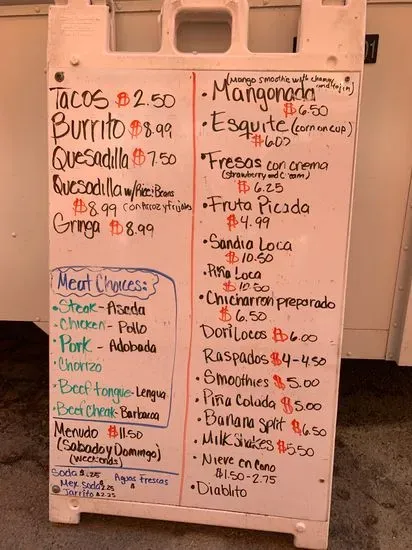 Tacos $2.50
Burrito $8.99
Quesadilla $7.50
Quesadilla w/Rice & Beans
$8.99 con Arroz y frijoles
Gringa $8.99
Meat Choices:
Steak - Asada
Chicken - Pollo
Pork - Adobada
Chorizo
Beef tongue - Lengua
Beef Cheek - Barbacoa
Menudo $11.50
(Sabado y Domingo)
(weekends)
Soda $1.25
Aguas Frescas
Mex Soda 2.25 $
Jarrito $2.25
(Mango smoothie with chamoy and tajin)
• Mangonada
$6.50
• Esquite (corn on cup)
$6.00
• Fresas con crema
(strawberry and cream)
$6.25
• Fruta Picada
$4.99
• Sandia Loca
$10.50
• Piña Loca
$10.50
• Chicharron preparado
$6.50
DoriLocos $6.00
Raspados $4-4.50
• Smoothies $5.00
• Piña Colada $5.00
• Banana Split $6.50
• Milk Shakes $5.50
• Nieve en Cono
$1.50-2.75
• Diablito